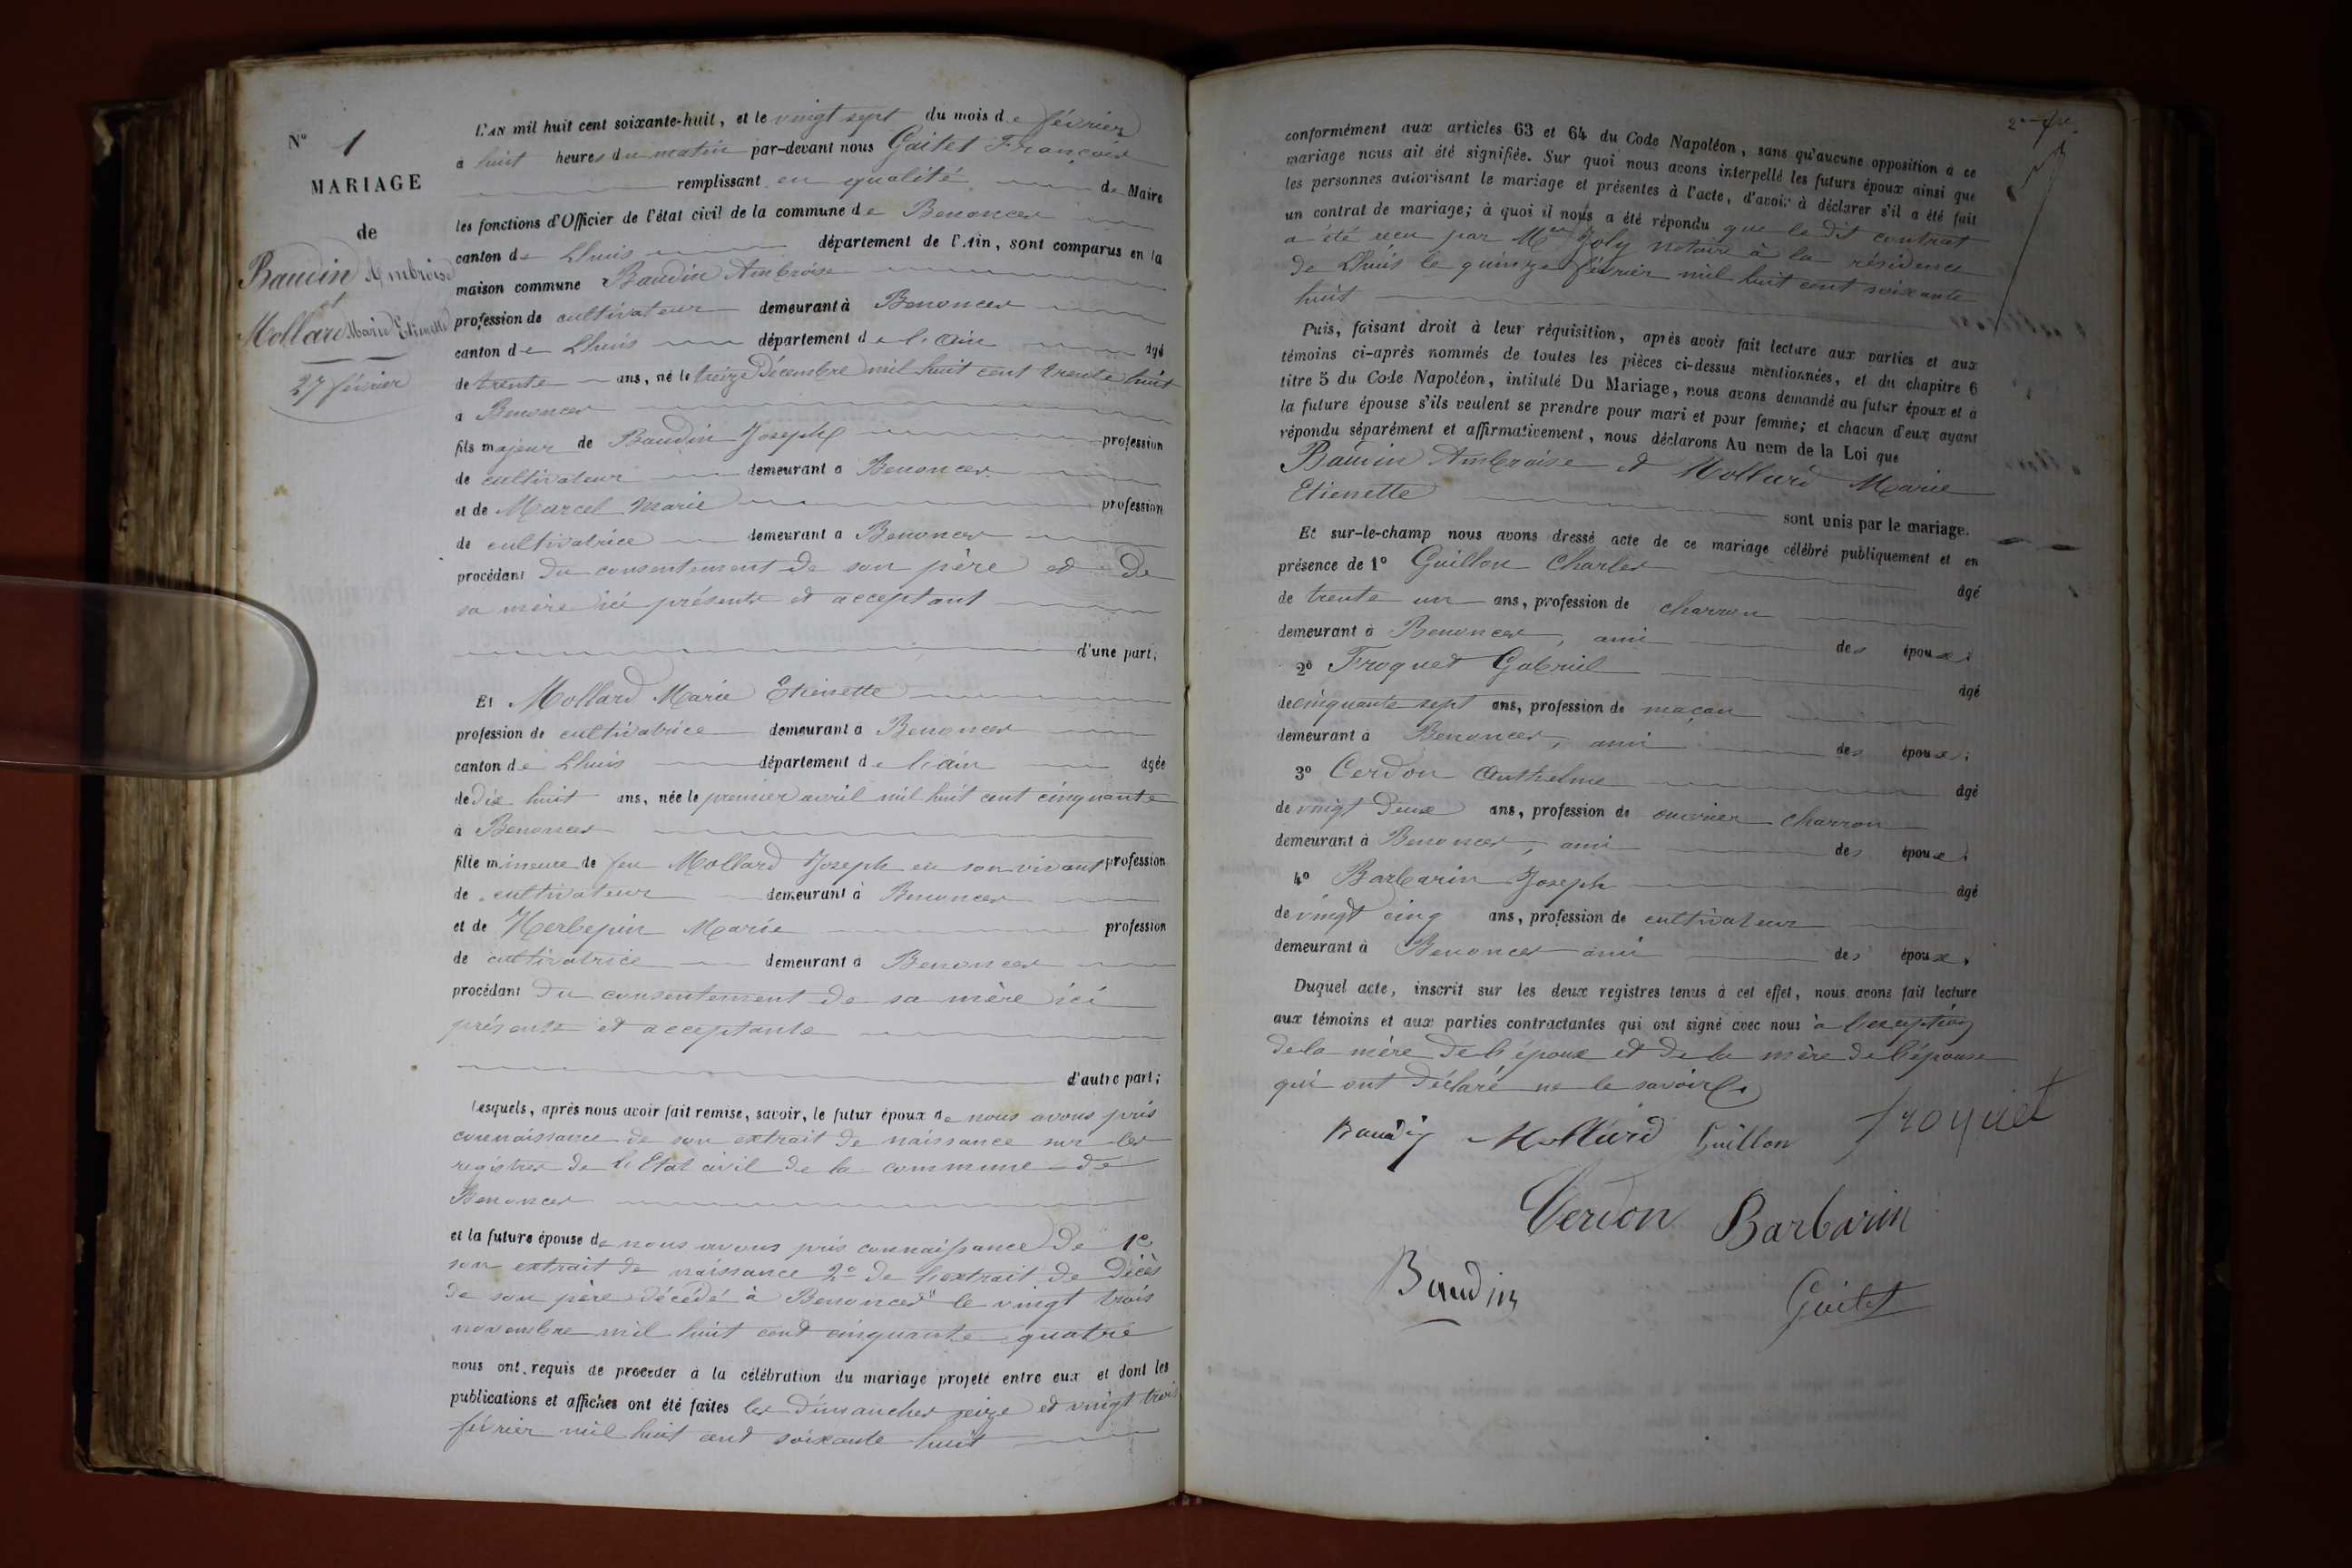 N° 1
MARIAGE
de
Baudin Ambroise
et
Mollard Marie Etienette
27 février
L'AN mil huit cent soixante-huit, et le vingt sept du mois de février
à huit heures du matin par-devant nous Gaitet François
remplissant en qualité de Maire
les fonctions d'Officier de l'état civil de la commune de Benonces
canton de Lhuis département de l'Ain, sont comparus en la
maison commune Baudin Ambroise
profession de cultivateur demeurant à Benonces
canton de Lhuis département de l'ain âgé
de trente ans, né le treize Décembre mil huit cent trente huit
à Benonces
fils majeur de Baudin Joseph profession
de cultivateur demeurant à Benonces
et de Marcel Marie profession
de cultivatrice demeurant à Benonces
procédant du consentement de son père et de
sa mère ici présents et acceptant
d'une part;
Et Mollard Marie Etienette
profession de cultivatrice demeurant à Benonces
canton de Lhuis département de l'ain âgée
de dix huit ans, née le premier avril mil huit cent cinquante
à Benonces
fille mineure de feu Mollard Joseph en son vivant profession
de cultivateur demeurant à Benonces
et de Herbepin Marie profession
de cultivatrice demeurant à Benonces
procédant du consentement de sa mère ici
présente et acceptante
d'autre part;
Lesquels, après nous avoir fait remise, savoir, le futur époux de nous avons pris
connaissance de son extrait de naissance sur les
registres de l'Etat civil de la commune de
Benonces
et la future épouse de nous avons pris connaissance de 1°
son extrait de naissance 2° de l'extrait de Décès
de son père décédé à Benonces le vingt trois
novembre mil huit cent cinquante quatre
nous ont requis de procéder à la célébration du mariage projeté entre eux et dont les
publications et affiches ont été faites les dimanches seize et vingt trois
février mil huit cent soixante huit
conformément aux articles 63 et 64 du Code Napoléon, sans qu'aucune opposition à ce
mariage nous ait été signifiée. Sur quoi nous avons interpellé les futurs époux ainsi que
les personnes autorisant le mariage et présentes à l'acte, d'avoir à déclarer s'il a été fait
un contrat de mariage; à quoi il nous a été répondu que le dit contrat
a été reçu par Me Joly notaire à la résidence
de Lhuis le quinze février mil huit cent soixante
huit
Puis, faisant droit à leur réquisition, après avoir fait lecture aux parties et aux
témoins ci-après nommés de toutes les pièces ci-dessus mentionnées, et du chapitre 6
titre 5 du Code Napoléon, intitulé Du Mariage, nous avons demandé au futur époux et à
la future épouse s'ils veulent se prendre pour mari et pour femme; et chacun d'eux ayant
répondu séparément et affirmativement, nous déclarons Au nom de la Loi que
Baudin Ambroise et Mollard Marie
Etienette
sont unis par le mariage.
Et sur-le-champ nous avons dressé acte de ce mariage célébré publiquement et en
présence de 1° Guillon Charles âgé
de trente un ans, profession de charron
demeurant à Benonces, ami des époux;
2° Froquet Gabriel âgé
de cinquante sept ans, profession de maçon
demeurant à Benonces, ami des époux;
3° Cerdon Anthelme âgé
de vingt deux ans, profession de ouvrier charron
demeurant à Benonces, ami des époux;
4° Barbarin Joseph âgé
de vingt cinq ans, profession de cultivateur
demeurant à Benonces ami des époux.
Duquel acte, inscrit sur les deux registres tenus à cet effet, nous avons fait lecture
aux témoins et aux parties contractantes qui ont signé avec nous à l'exception
de la mère de l'époux et de la mère de l'épouse
qui ont déclaré ne le savoir
Baudin Mollard Guillon froquet
Cerdon Barbarin
Baudin Gaitet